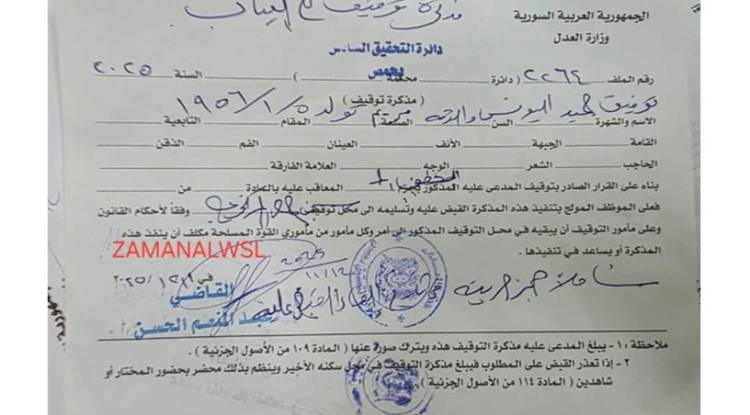 الجمهورية العربية السورية
وزارة العدل
مذكرة توقيف
دائرة التحقيق السادس
بحمص
رقم الملف ٢٢٦٤ ( دائرة محكمة ) السنة ٢٠٢٥
( مذكرة توقيف )
توفيق حميد اليونس والدته مريم تولد ١٩٥٦/١/٥
الاسم والشهرة السن الصنعة المقام التابعية
القامة الجبهة الأنف العينان الفم الذقن
الحاجب الشعر الوجه العلامة الفارقة
بناء على القرار الصادر بتوقيف المدعى عليه المذكور بجرم الخطف المعاقب عليه بالمادة من
فعلى الموظف المولج بتنفيذ هذه المذكرة القبض عليه وتسليمه الى محل توقيف وفقاً لأحكام القانون
وعلى مأمور التوقيف أن يبقيه في محل التوقيف المذكور الى أمر وكل مأمور من مأموري القوة المسلحة مكلف أن ينفذ هذه
المذكرة أو يساعد في تنفيذها .
ZAMANALWSL
في
القاضي
عبد المنعم الحسن
ملاحظة : ١ - يبلغ المدعى عليه مذكرة التوقيف هذه ويترك صورة عنها ( المادة ١٠٩ من الأصول الجزئية ) .
٢ - إذا تعذر القبض على المطلوب فيبلغ مذكرة التوقيف في محل سكنه الأخير وينظم بذلك محضر بحضور المختار أو
شاهدين ( المادة ١١٤ من الأصول الجزئية ) .